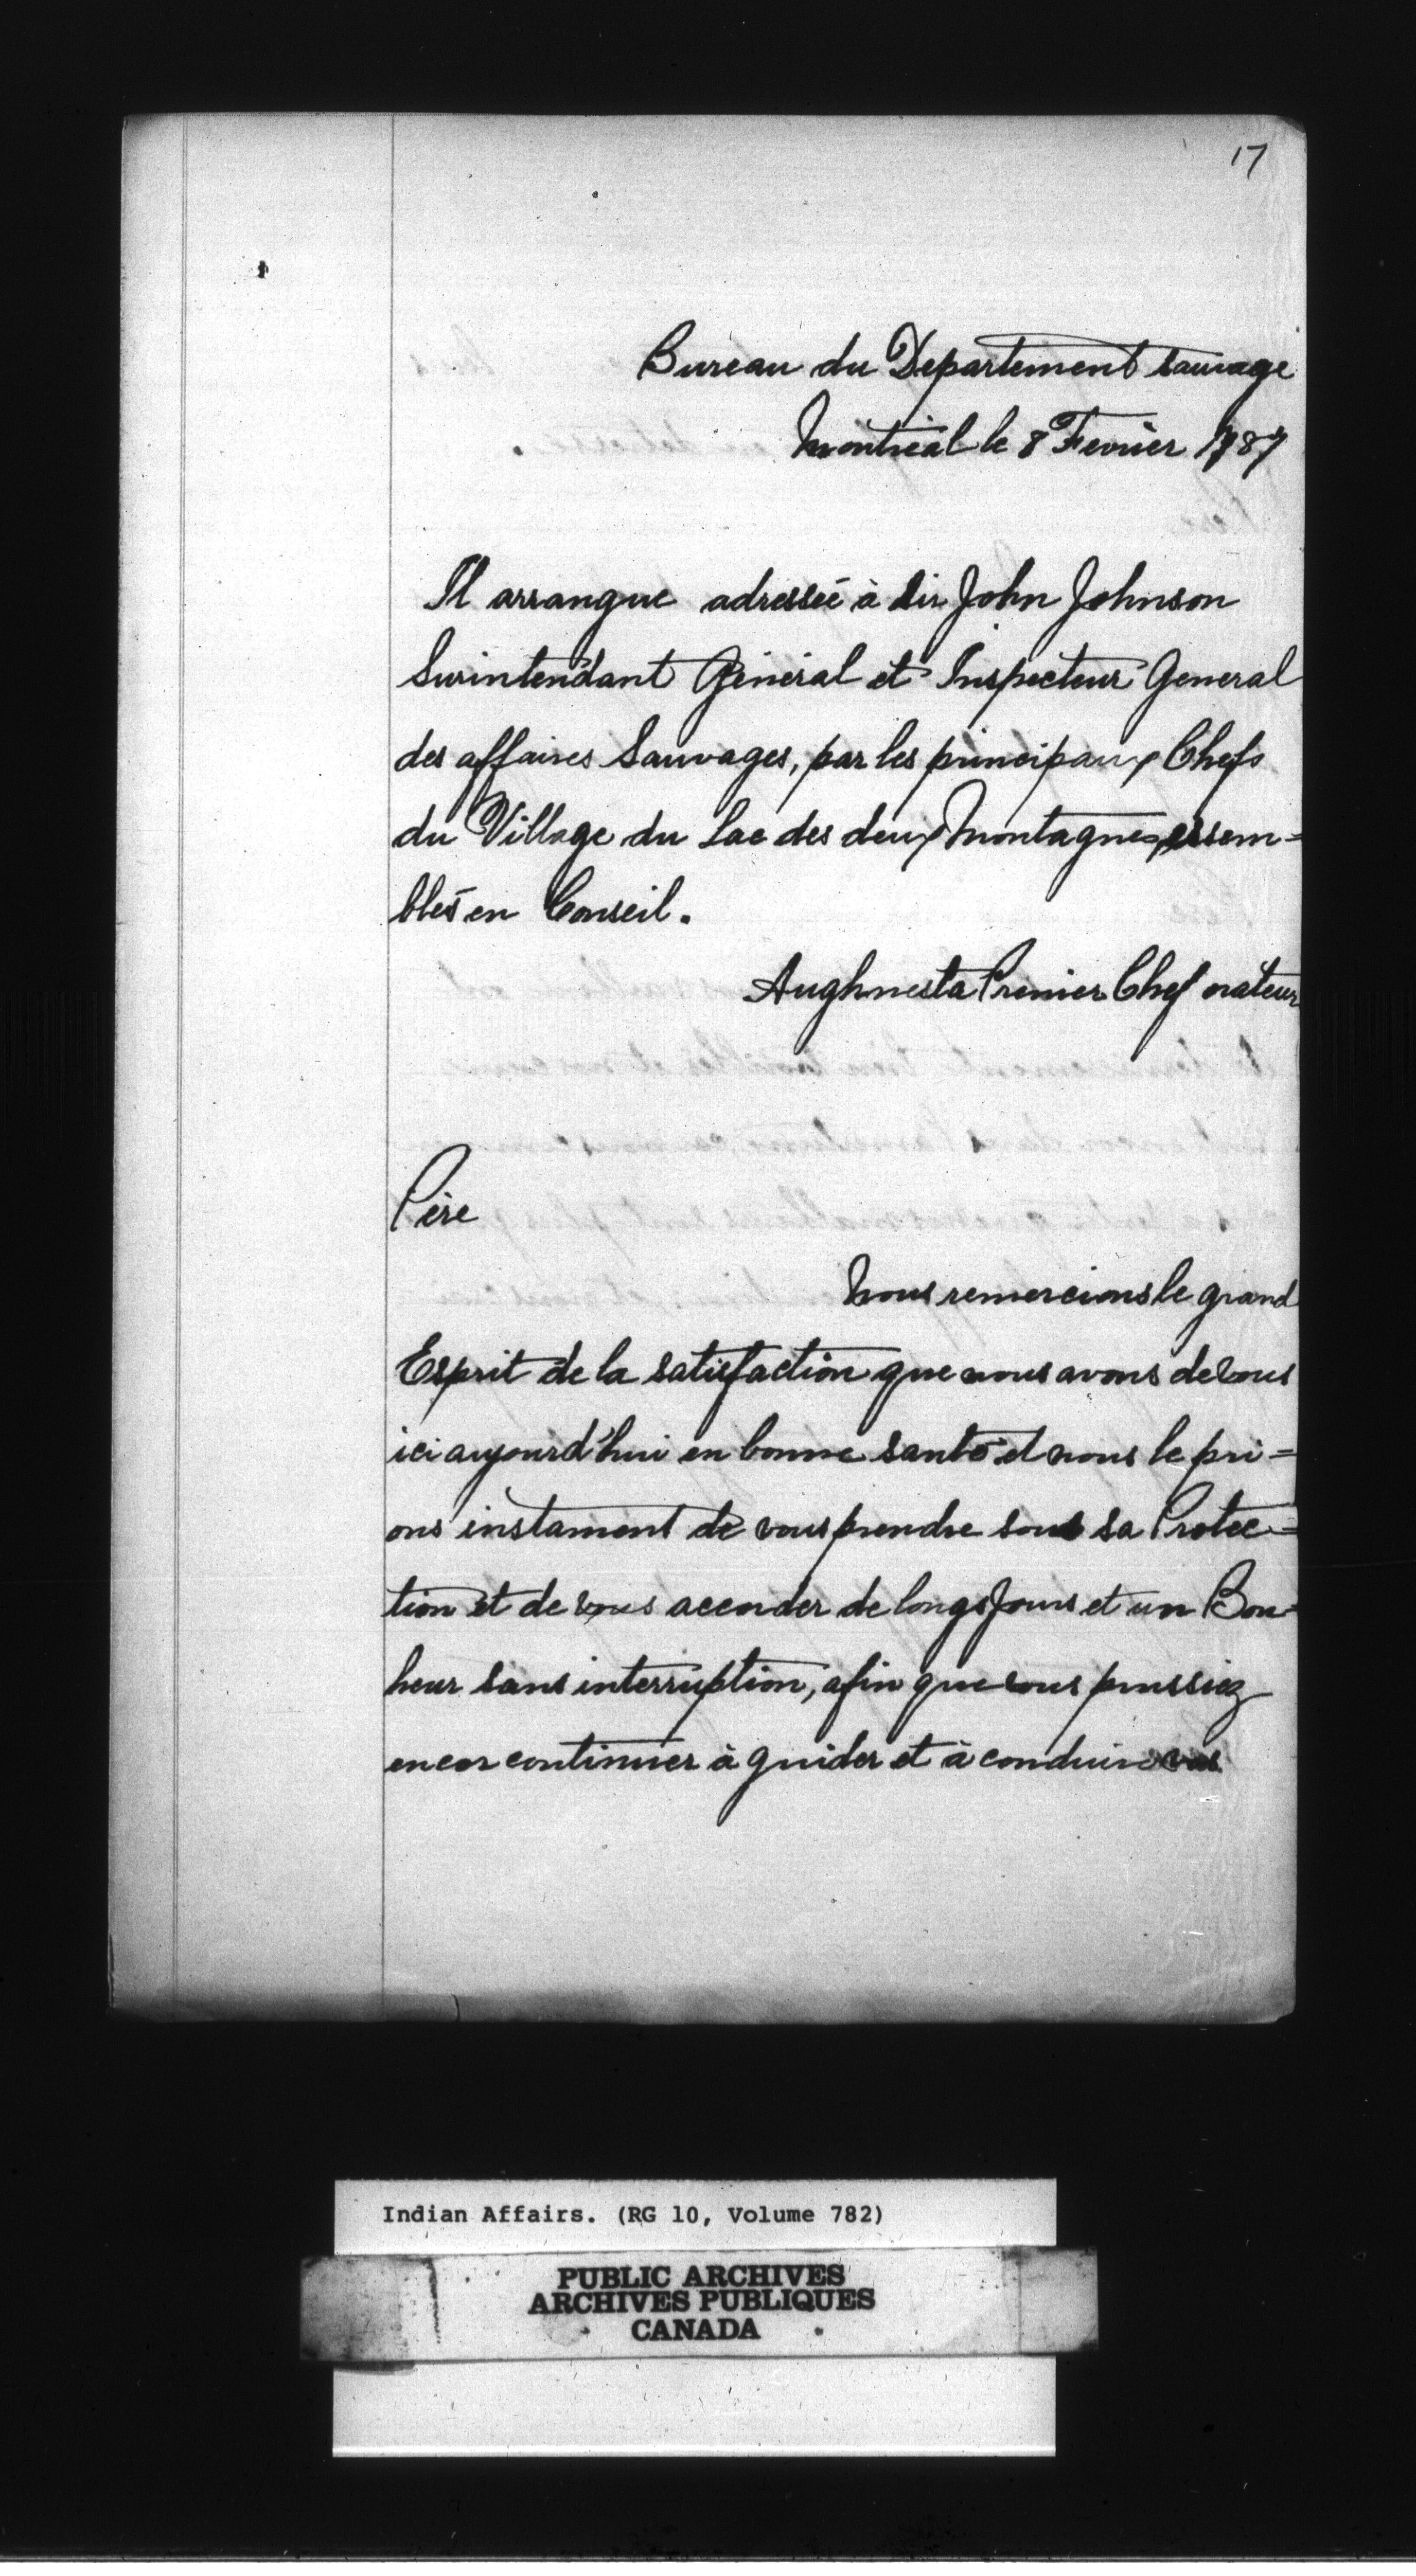 17
Bureau du Departement sauvage
Montreal le 8 Fevrier 1787
Il arrangue adressée à Sir John Johnson
Surintendant Général et Inspecteur General
des affaires Sauvages, par les principaux Chefs
du Village du Lac des deux Montagnes, assem=
blés en Conseil.
Aughnesta Premier Chef orateur
Père
Nous remercions le grand
Esprit de la satisfaction que nous avons de vous
ici aujourd'hui en bonne santé et nous le pri=
ons instament de vous prendre sous sa Protec=
tion et de vous accorder de longs Jours et un Bon=
heur sans interruption, afin que vous pussiez
encor continuer à guider et à conduire vos
Indian Affairs. (RG 10, Volume 782)
PUBLIC ARCHIVES
ARCHIVES PUBLIQUES
CANADA